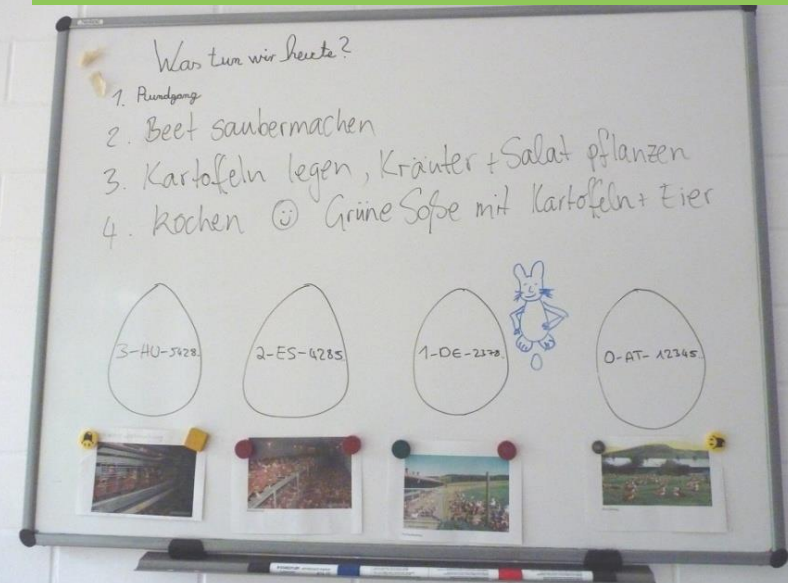 Was tun wir heute?
1. Rundgang
2. Beet saubermachen
3. Kartoffeln legen, Kräuter + Salat pflanzen
4. Kochen ☺ Grüne Soße mit Kartoffeln + Eier
3-HU-5428.
2-ES-4285
1-DE-2378.
0-AT-12345.